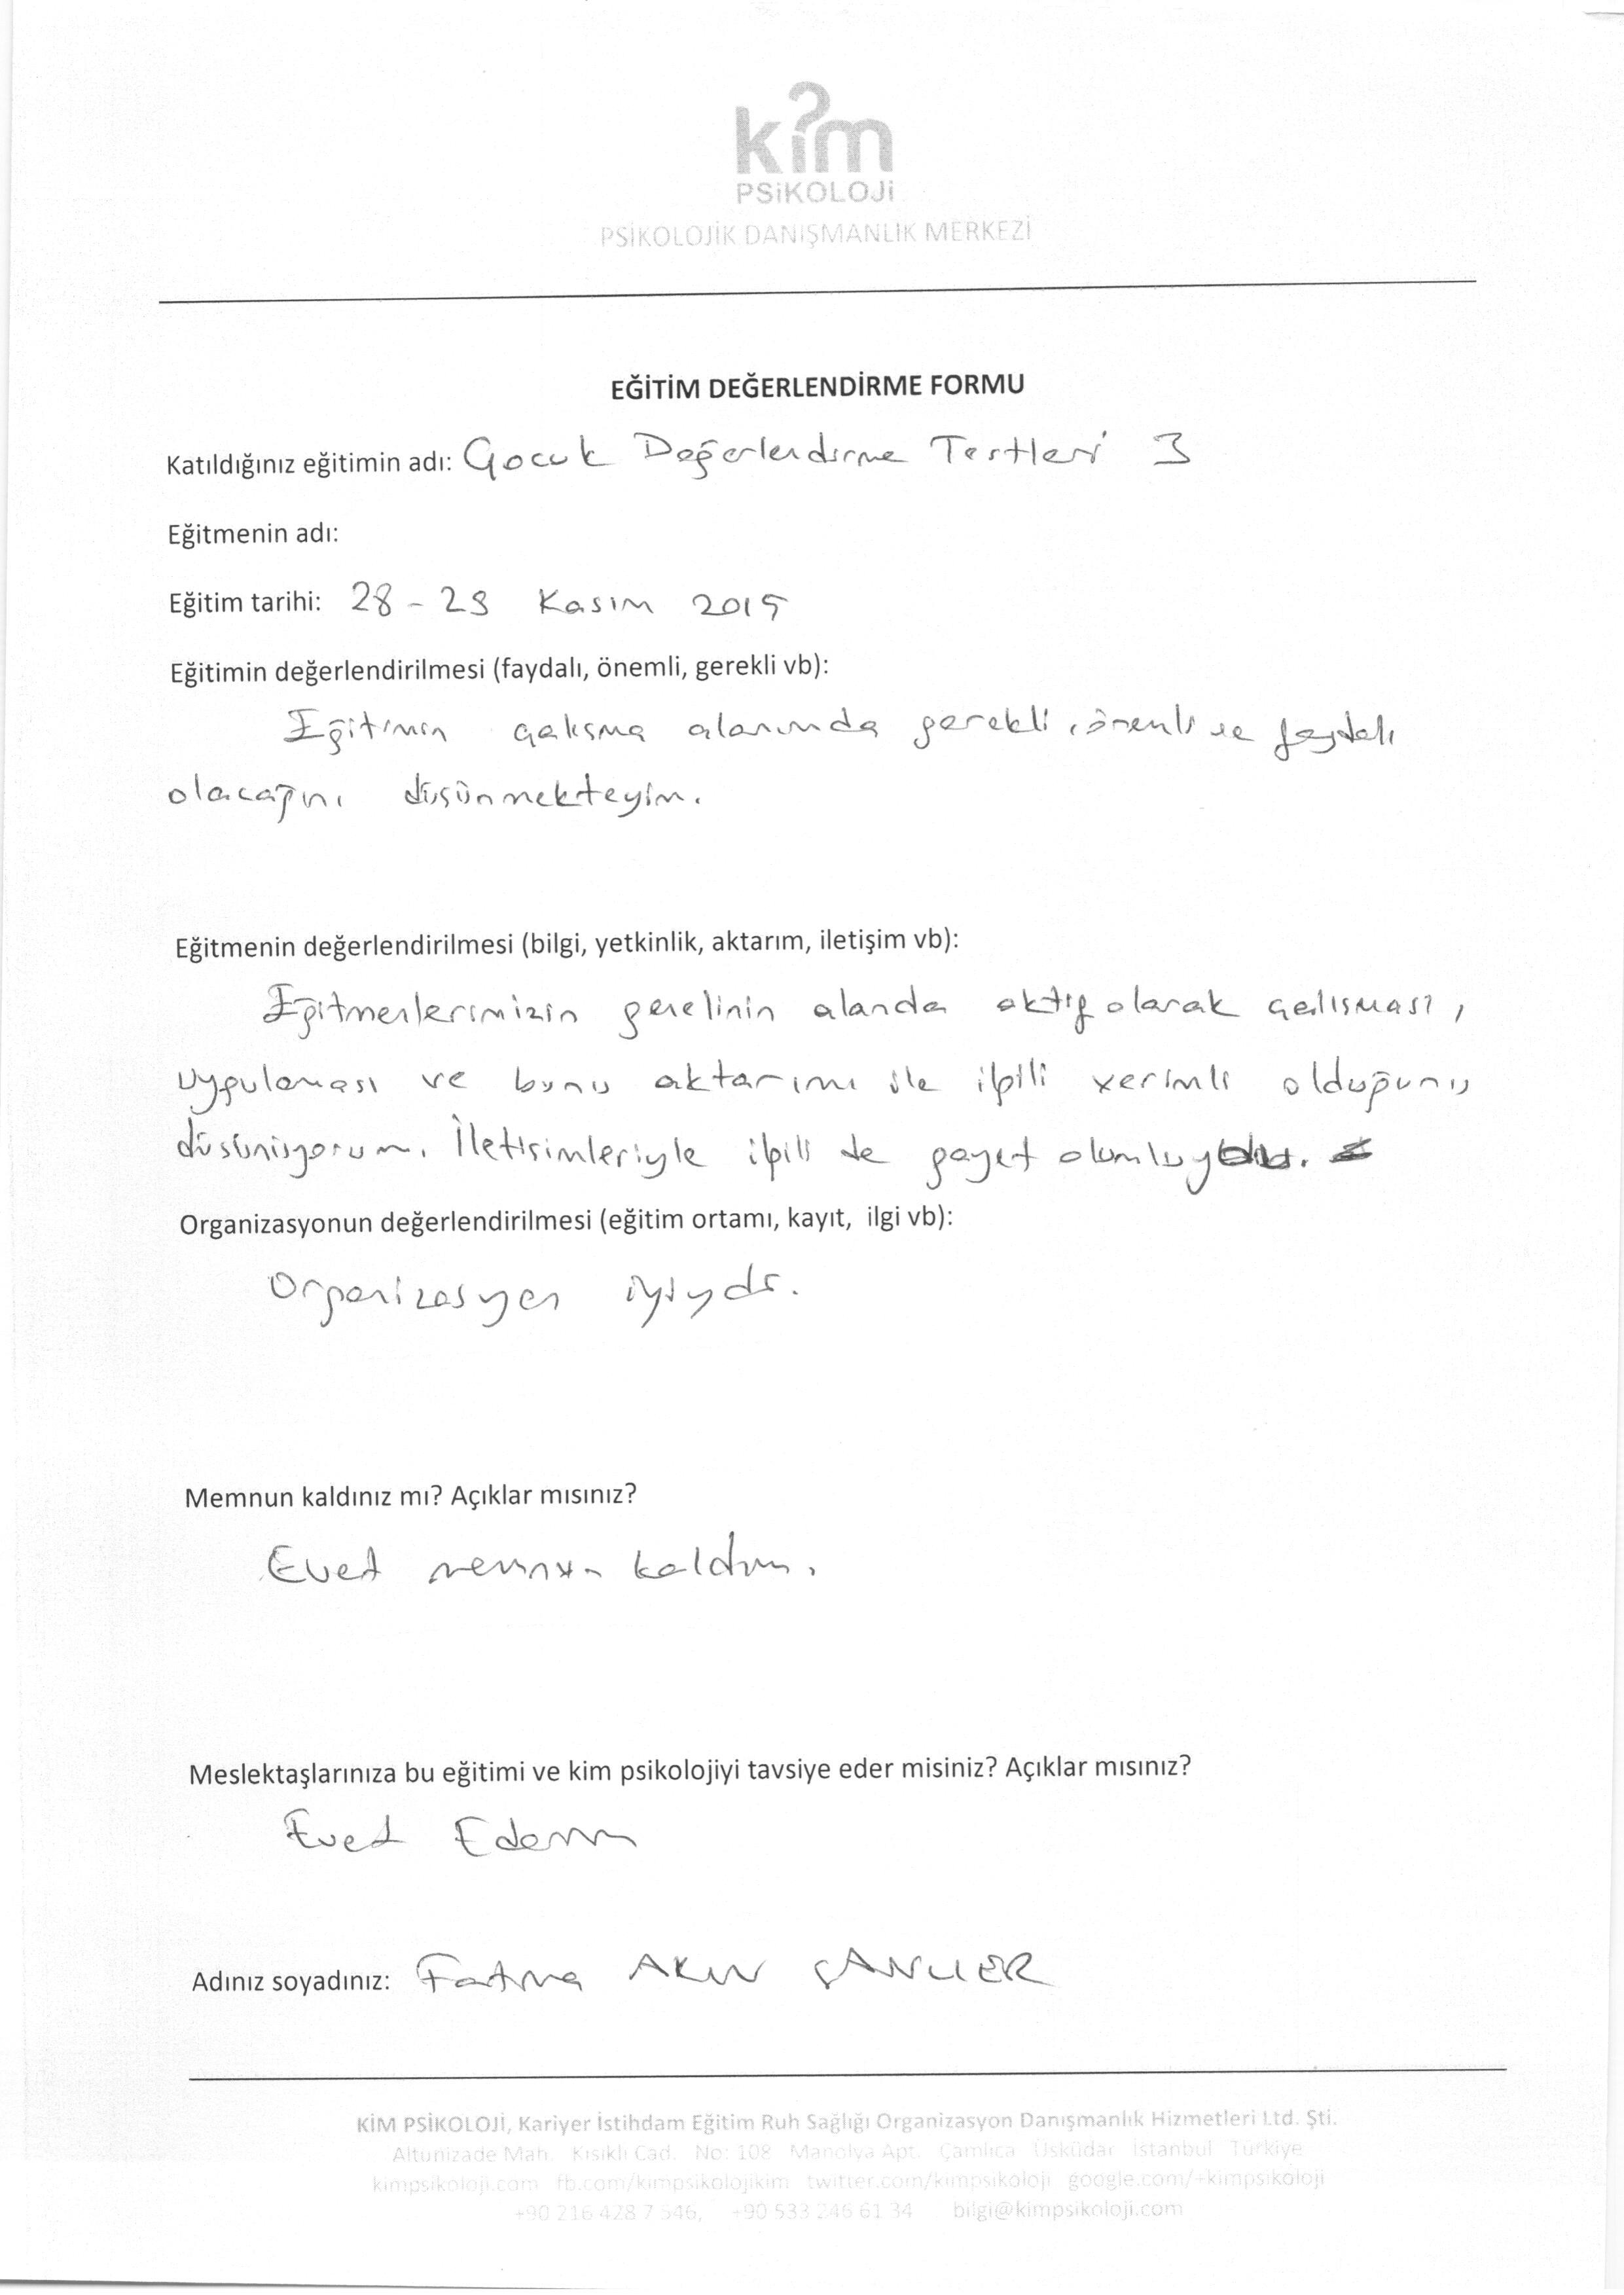 kim
PSİKOLOJİ
PSİKOLOJİK DANIŞMANLIK MERKEZİ
EĞİTİM DEĞERLENDİRME FORMU
Katıldığınız eğitimin adı: Çocuk Değerlendirme Testleri 3
Eğitmenin adı:
Eğitim tarihi: 28 - 29 Kasım 2015
Eğitimin değerlendirilmesi (faydalı, önemli, gerekli vb):
Eğitimin çalışma alanımda gerekli, önemli ve faydalı
olacağını düşünmekteyim.
Eğitmenin değerlendirilmesi (bilgi, yetkinlik, aktarım, iletişim vb):
Eğitmenlerimizin genelinin alanda aktif olarak çalışması,
uygulaması ve bunu aktarımı ile ilgili verimli olduğunu
düşünüyorum. İletişimleriyle ilgili de gayet olumluydu.
Organizasyonun değerlendirilmesi (eğitim ortamı, kayıt, ilgi vb):
Organizasyon iyiydi.
Memnun kaldınız mı? Açıklar mısınız?
Evet memnun kaldım.
Meslektaşlarınıza bu eğitimi ve kim psikolojiyi tavsiye eder misiniz? Açıklar mısınız?
Evet Ederim
Adınız soyadınız: Fatma AKIN
KİM PSİKOLOJİ, Kariyer İstihdam Eğitim Ruh Sağlığı Organizasyon Danışmanlık Hizmetleri Ltd. Şti.
Altunizade Mah. Kısıklı Cad. No: 108 Manolya Apt. Çamlıca Üsküdar İstanbul Türkiye
kimpsikoloji.com fb.com/kimpsikolojikim twitter.com/kimpsikoloji google.com/+kimpsikoloji
+90 216 428 7 546, +90 533 246 61 34 bilgi@kimpsikoloji.com